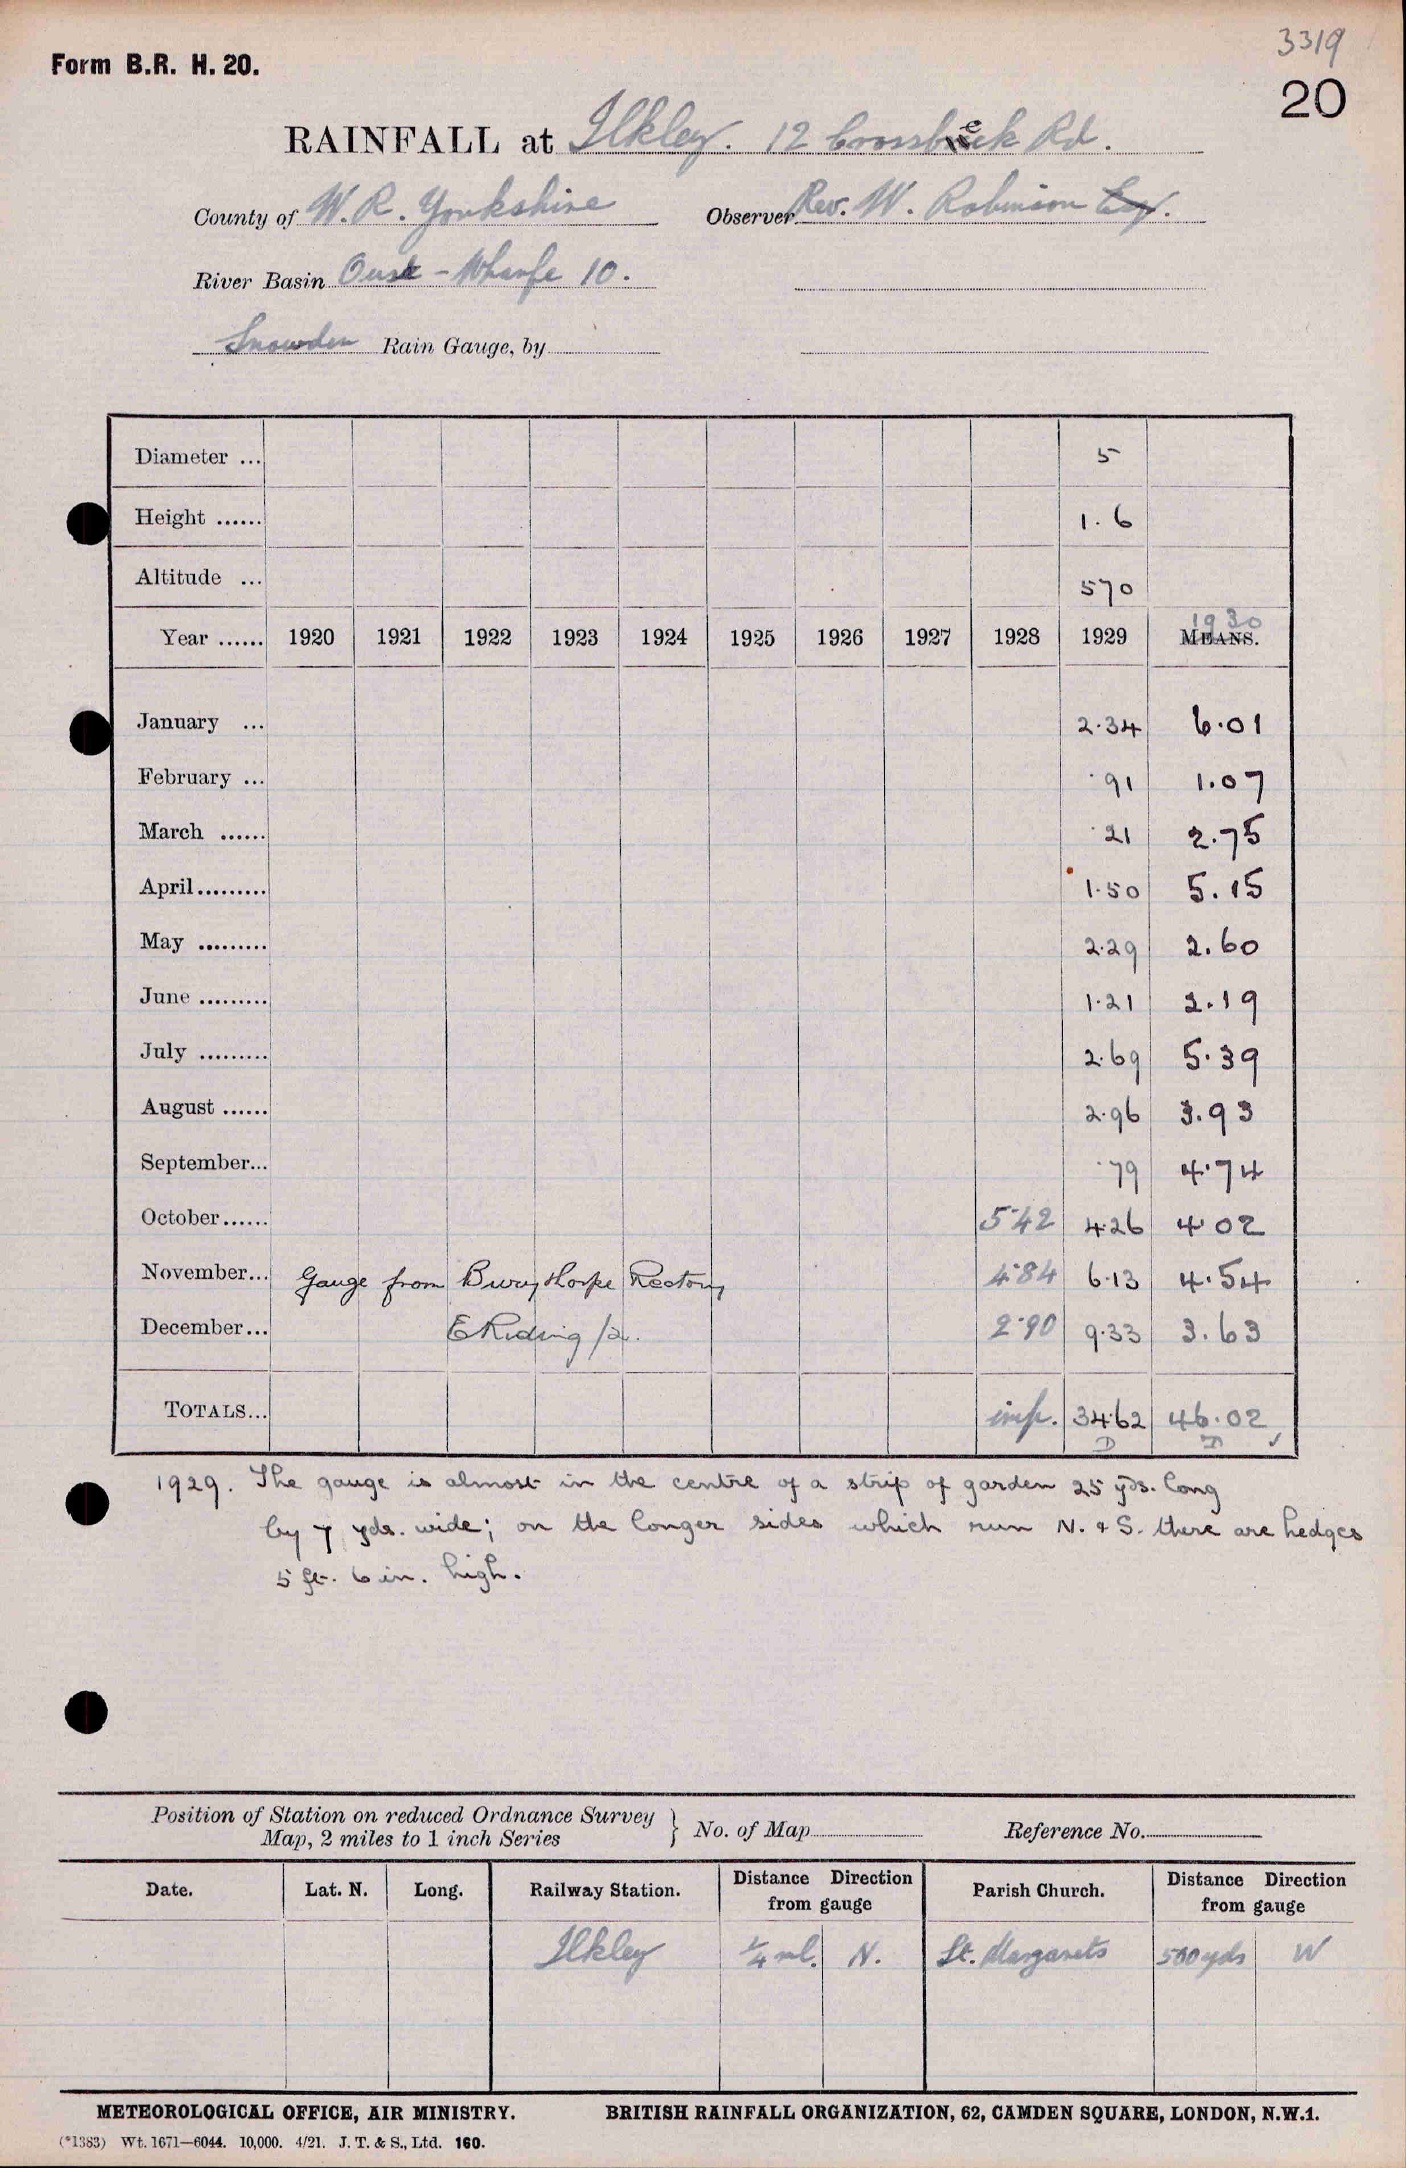 3319
Form B.R. H. 20.
20
RAINFALL at Ilkley. 12 Crossbeck Rd.
County of W. R. Yorkshire Observer Rev. W. Robinson Esq.
River Basin Ouse - Wharfe 10.
Snowden Rain Gauge, by
Diameter ... 5
Height ...... 1.6
Altitude ... 570
1930
Year ...... 1920 1921 1922 1923 1924 1925 1926 1927 1928 1929 MEANS.
January ... 2.34 6.01
February ... .91 1.07
March ...... .21 2.75
April ......... 1.50 5.15
May ......... 2.29 2.60
June ......... 1.21 2.19
July ......... 2.69 5.39
August ...... 2.96 3.93
September... .79 4.74
October...... 5.42 4.26 4.02
November... Gauge from Burythorpe Rectory 4.84 6.13 4.54
December... E Riding /2. 2.90 9.33 3.63
TOTALS... imp. 34.62 46.02
D D ✓
1929. The gauge is almost in the centre of a strip of garden 25 yds. long
by 7 yds. wide; on the longer sides which run N. & S. there are hedges
5 ft. 6 in. high.
Position of Station on reduced Ordnance Survey
Map, 2 miles to 1 inch Series } No. of Map Reference No.
Date. Lat. N. Long. Railway Station. Distance Direction from gauge Parish Church. Distance Direction from gauge
Ilkley 1/4 ml. N. St. Margarets 500 yds W
METEOROLOGICAL OFFICE, AIR MINISTRY. BRITISH RAINFALL ORGANIZATION, 62, CAMDEN SQUARE, LONDON, N.W.1.
(*1383) Wt. 1671—6044. 10,000. 4/21. J. T. & S., Ltd. 160.